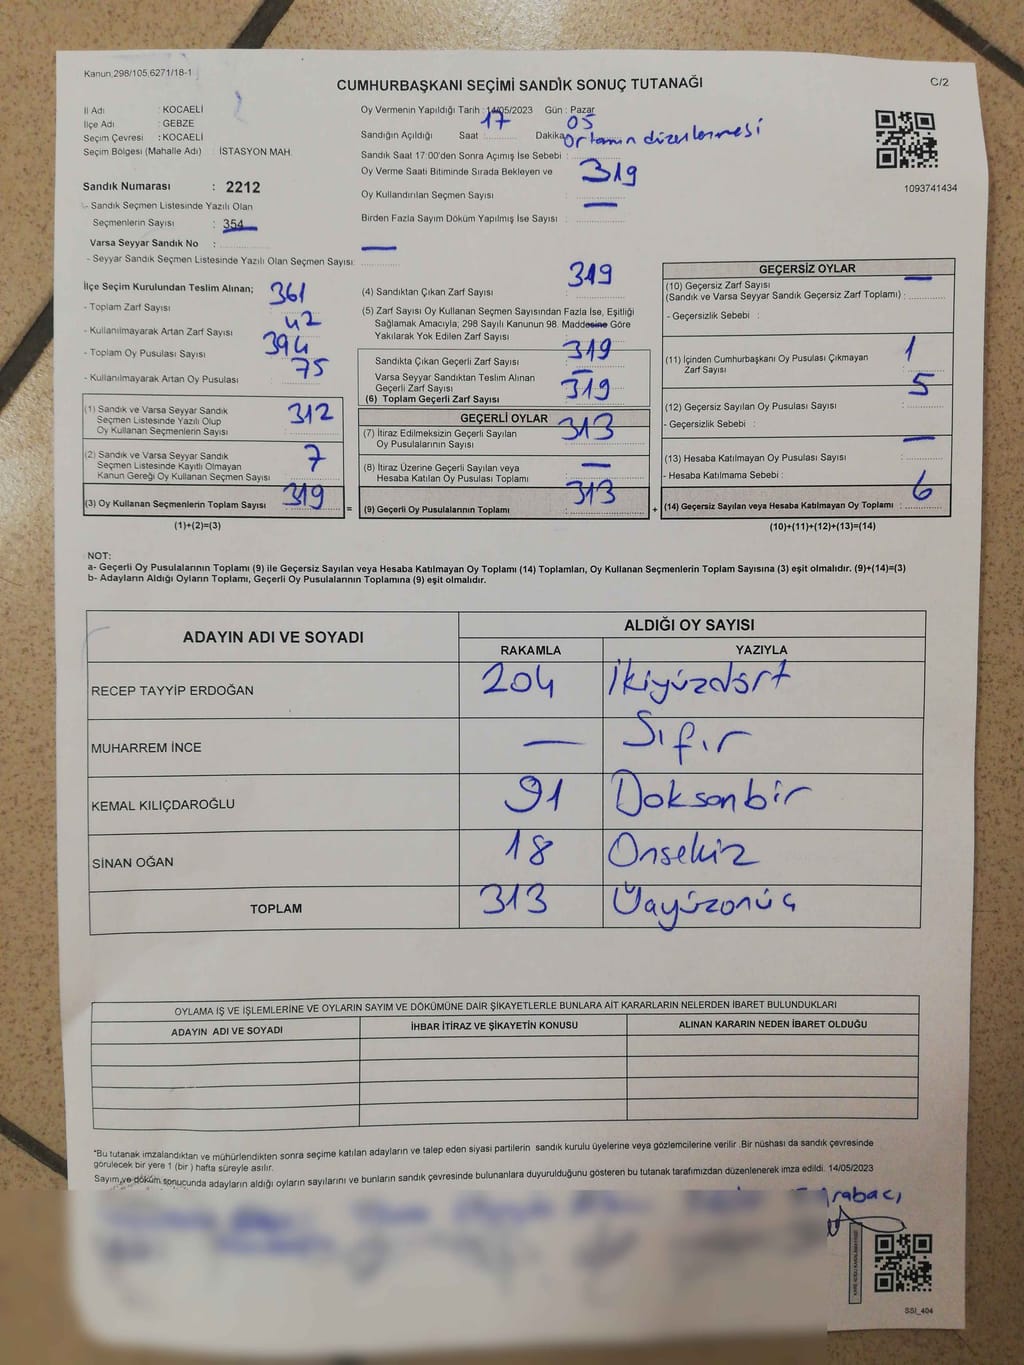 Kanun,298/105,6271/18-1
C/2
CUMHURBAŞKANI SEÇİMİ SANDIK SONUÇ TUTANAĞI
İl Adı : KOCAELİ
İlçe Adı : GEBZE
Seçim Çevresi : KOCAELİ
Seçim Bölgesi (Mahalle Adı) : İSTASYON MAH.
Sandık Numarası : 2212
- Sandık Seçmen Listesinde Yazılı Olan
Seçmenlerin Sayısı : 354
Varsa Seyyar Sandık No :
- Seyyar Sandık Seçmen Listesinde Yazılı Olan Seçmen Sayısı: —
Oy Vermenin Yapıldığı Tarih : 14/05/2023 Gün : Pazar
Sandığın Açıldığı Saat 17 Dakika 05
Sandık Saat 17:00'den Sonra Açımış İse Sebebi : Ortamın düzenlenmesi
Oy Verme Saati Bitiminde Sırada Bekleyen ve
Oy Kullandırılan Seçmen Sayısı : 319
Birden Fazla Sayım Döküm Yapılmış İse Sayısı : —
1093741434
İlçe Seçim Kurulundan Teslim Alınan;
- Toplam Zarf Sayısı : 361
- Kullanılmayarak Artan Zarf Sayısı : 42
- Toplam Oy Pusulası Sayısı : 394
- Kullanılmayarak Artan Oy Pusulası : 75
(1) Sandık ve Varsa Seyyar Sandık
Seçmen Listesinde Yazılı Olup
Oy Kullanan Seçmenlerin Sayısı : 312
(2) Sandık ve Varsa Seyyar Sandık
Seçmen Listesinde Kayıtlı Olmayan
Kanun Gereği Oy Kullanan Seçmen Sayısı : 7
(3) Oy Kullanan Seçmenlerin Toplam Sayısı : 319
(1)+(2)=(3)
(4) Sandıktan Çıkan Zarf Sayısı : 319
(5) Zarf Sayısı Oy Kullanan Seçmen Sayısından Fazla İse, Eşitliği
Sağlamak Amacıyla; 298 Sayılı Kanunun 98. Maddesine Göre
Yakılarak Yok Edilen Zarf Sayısı :
Sandıkta Çıkan Geçerli Zarf Sayısı : 319
Varsa Seyyar Sandıktan Teslim Alınan
Geçerli Zarf Sayısı : —
(6) Toplam Geçerli Zarf Sayısı : 319
GEÇERLİ OYLAR
(7) İtiraz Edilmeksizin Geçerli Sayılan
Oy Pusulalarının Sayısı : 313
(8) İtiraz Üzerine Geçerli Sayılan veya
Hesaba Katılan Oy Pusulaları Toplamı : —
= (9) Geçerli Oy Pusulalarının Toplamı : 313
GEÇERSİZ OYLAR
(10) Geçersiz Zarf Sayısı
(Sandık ve Varsa Seyyar Sandık Geçersiz Zarf Toplamı) : —
- Geçersizlik Sebebi :
(11) İçinden Cumhurbaşkanı Oy Pusulası Çıkmayan
Zarf Sayısı : 1
(12) Geçersiz Sayılan Oy Pusulası Sayısı : 5
- Geçersizlik Sebebi :
(13) Hesaba Katılmayan Oy Pusulası Sayısı : —
- Hesaba Katılmama Sebebi :
+ (14) Geçersiz Sayılan veya Hesaba Katılmayan Oy Toplamı : 6
(10)+(11)+(12)+(13)=(14)
NOT:
a- Geçerli Oy Pusulalarının Toplamı (9) ile Geçersiz Sayılan veya Hesaba Katılmayan Oy Toplamı (14) Toplamları, Oy Kullanan Seçmenlerin Toplam Sayısına (3) eşit olmalıdır. (9)+(14)=(3)
b- Adayların Aldığı Oyların Toplamı, Geçerli Oy Pusulalarının Toplamına (9) eşit olmalıdır.
ADAYIN ADI VE SOYADI ALDIĞI OY SAYISI
RAKAMLA YAZIYLA
RECEP TAYYİP ERDOĞAN 204 İkiyüzdört
MUHARREM İNCE — Sıfır
KEMAL KILIÇDAROĞLU 91 Doksanbir
SİNAN OĞAN 18 Onsekiz
TOPLAM 313 Üçyüzonüç
OYLAMA İŞ VE İŞLEMLERİNE VE OYLARIN SAYIM VE DÖKÜMÜNE DAİR ŞİKAYETLERLE BUNLARA AİT KARARLARIN NELERDEN İBARET BULUNDUKLARI
ADAYIN ADI VE SOYADI İHBAR İTİRAZ VE ŞİKAYETİN KONUSU ALINAN KARARIN NEDEN İBARET OLDUĞU
*Bu tutanak imzalandıktan ve mühürlendikten sonra seçime katılan adayların ve talep eden siyasi partilerin sandık kurulu üyelerine veya gözlemcilerine verilir .Bir nüshası da sandık çevresinde
görülecek bir yere 1 (bir ) hafta süreyle asılır.
Sayım ve döküm sonucunda adayların aldığı oyların sayılarını ve bunların sandık çevresinde bulunanlara duyurulduğunu gösteren bu tutanak tarafımızdan düzenlenerek imza edildi. 14/05/2023
SSİ_404